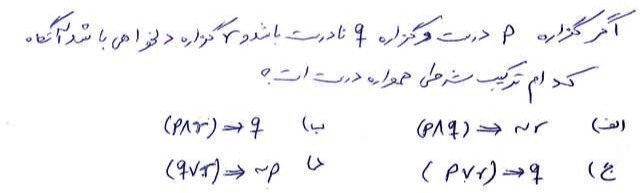 اگر گزاره p درست و گزاره q نادرست باشد و r گزاره دلخواهی باشد آنگاه
کدام ترکیب شرطی همواره درست است؟
الف) (p∧q) ⇒ ~r ب) (p∧r) ⇒ q
ج) (p∨r) ⇒ q د) (q∨r) ⇒ ~p